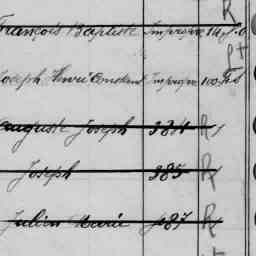 R
François Baptiste Impropre
Joseph Henri Constant Impropre 100
Auguste Joseph 384 R
Joseph 385 R
Julien Marie 487 R